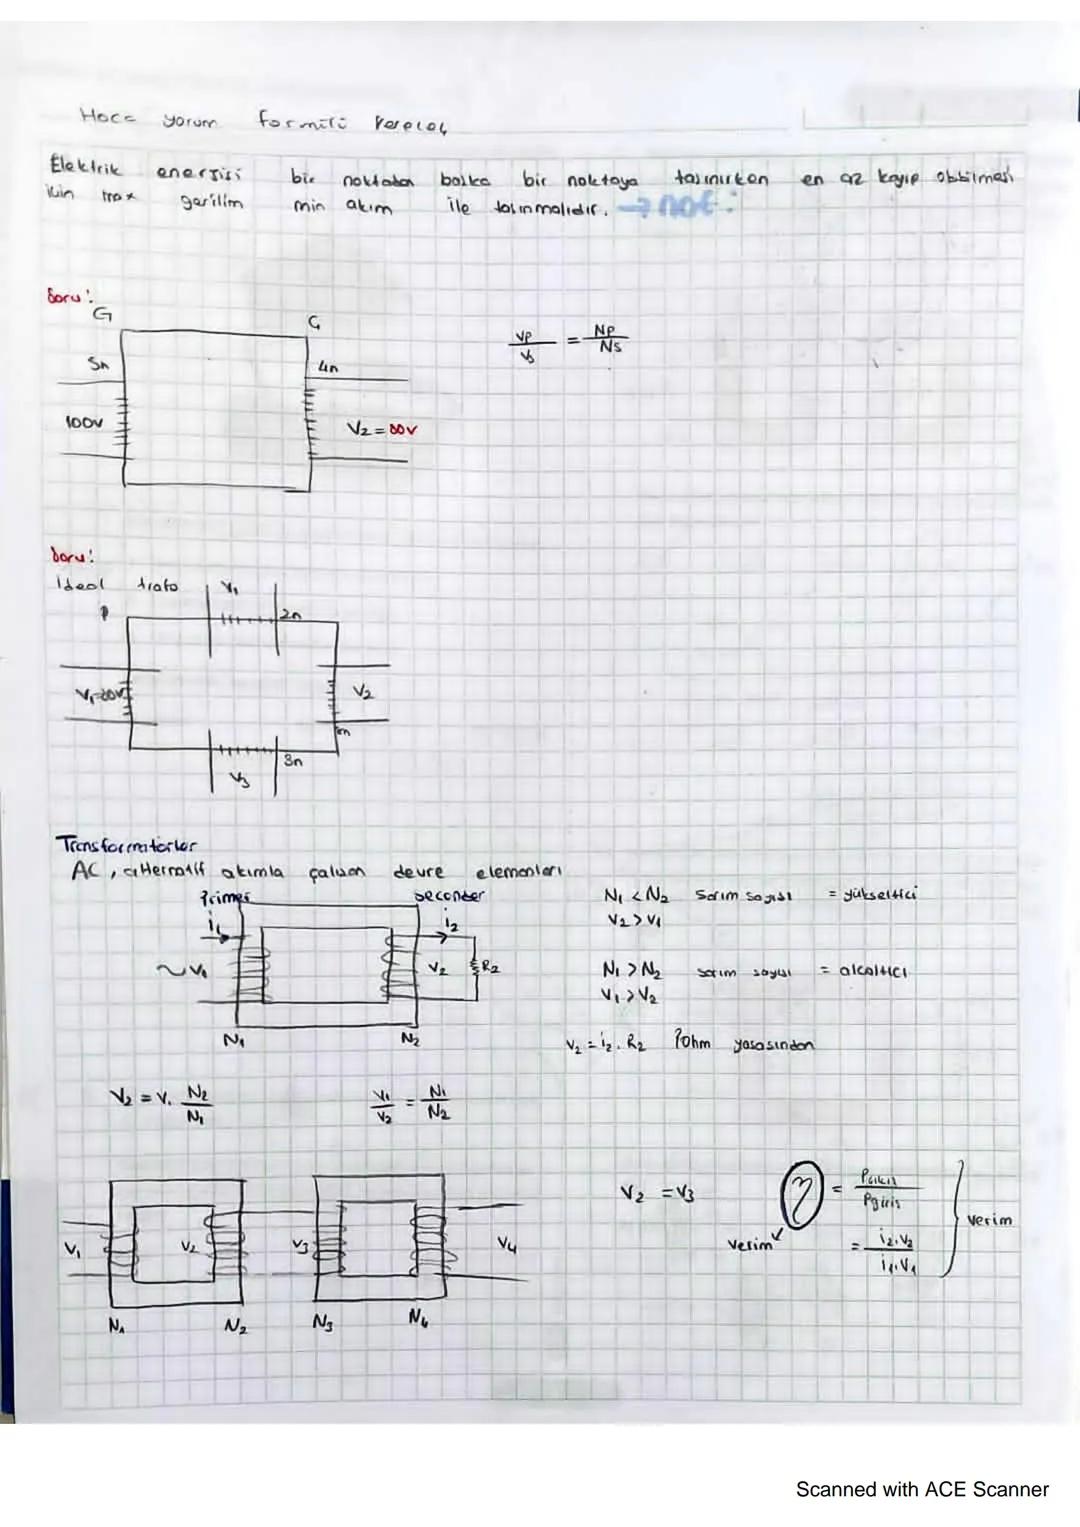 Hoca yorum formülü verecek
Elektrik enerjisi bir noktadan başka bir noktaya taşınırken en az kayıp olabilmesi
için max gerilim min akım ile taşınmalıdır. → not:
Soru:
G G
5n 4n
Vp/Vs = Np/Ns
100V V₂ = 80V
Soru:
Ideal trafo V₁
P 2n
V₂
n
3n
V₃
Transformatörler
AC, alternatif akımla çalışan devre elemanları
Primer seconder
i₁ i₂
~ V₁ V₂ R₂
N₁ N₂
N₁ < N₂ Sarım sayısı = yükseltici
V₂ > V₁
N₁ > N₂ sarım sayısı = alçaltıcı
V₁ > V₂
V₂ = i₂ . R₂ ohm yasasından
V₂ = V₁ N₂/N₁ V₁/V₂ = N₁/N₂
V₂ = V₃ η = Pçıkış/Pgiriş
verim = i₂.V₂/i₁.V₁ verim
V₁ V₂ V₃ V₄
N₁ N₂ N₃ N₄
Scanned with ACE Scanner